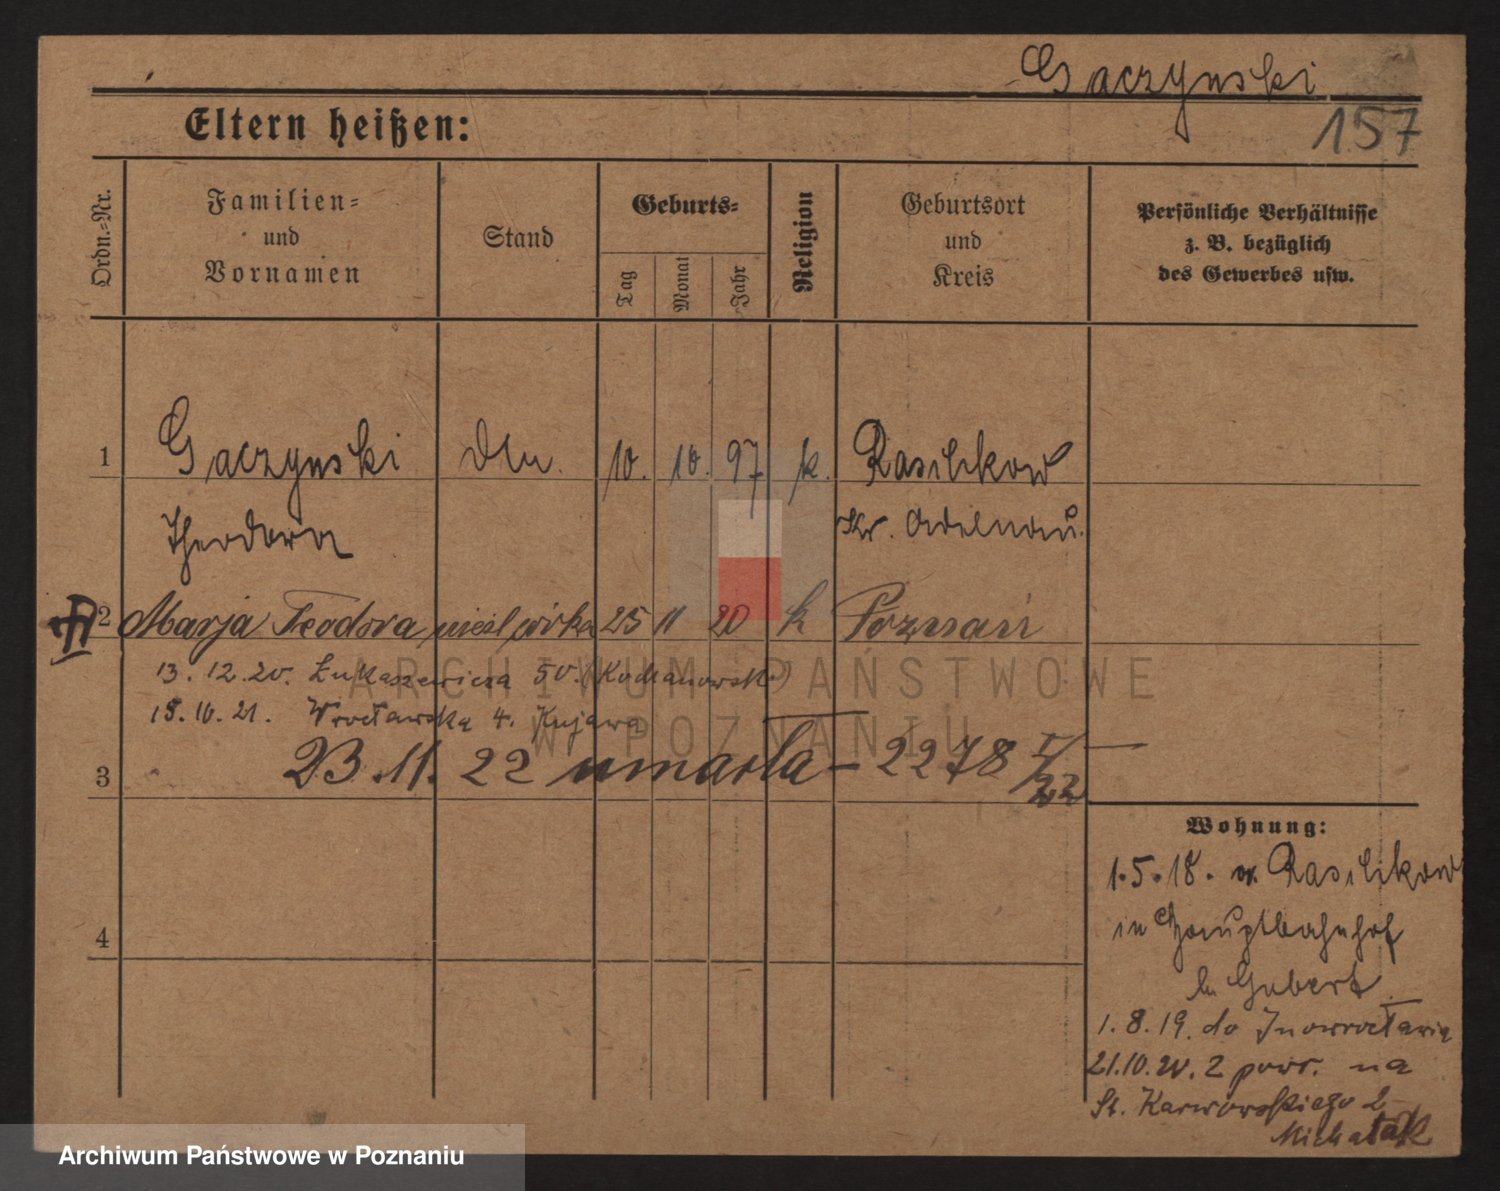 Gaczynski
157
Eltern heißen:
Ordn.-Nr.
Familien-
und
Vornamen
Stand
Geburts-
Tag
Monat
Jahr
Religion
Geburtsort
und
Kreis
Persönliche Verhältnisse
z. B. bezüglich
des Gewerbes usw.
1 Gaczynski 10. 10. 97 k. Raschkow
Theodora Kr. Adelnau.
2 Marja Teodora 25 11 20 k Poznań
13. 12. 20. Łukaszewicza 50.
15. 10. 21. Wrocławska 4. Kujawa
3 23. 11. 22 umarła – 2278 I/22
4
Wohnung:
1.5.18. Raschkow
in Hauptbahnhof
b. Gubert
1.8.19. do Inowrocławia
21.10. 2 powr. na
St. Karwowskiego 2
Michalak
ARCHIWUM PAŃSTWOWE
W POZNANIU
Archiwum Państwowe w Poznaniu